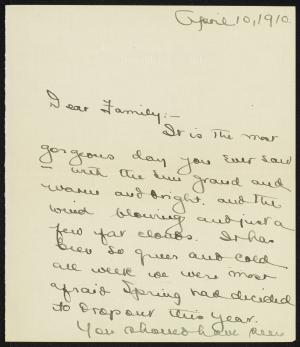 April 10, 1910.
Dear Family:-
It is the most
gorgeous day you ever saw
- with the sun grand and
warm and bright. and the
wind blowing and just a
few fat clouds. It has
been so queer and cold
all week we were most
afraid Spring had decided
to drop out this year.
You should have seen